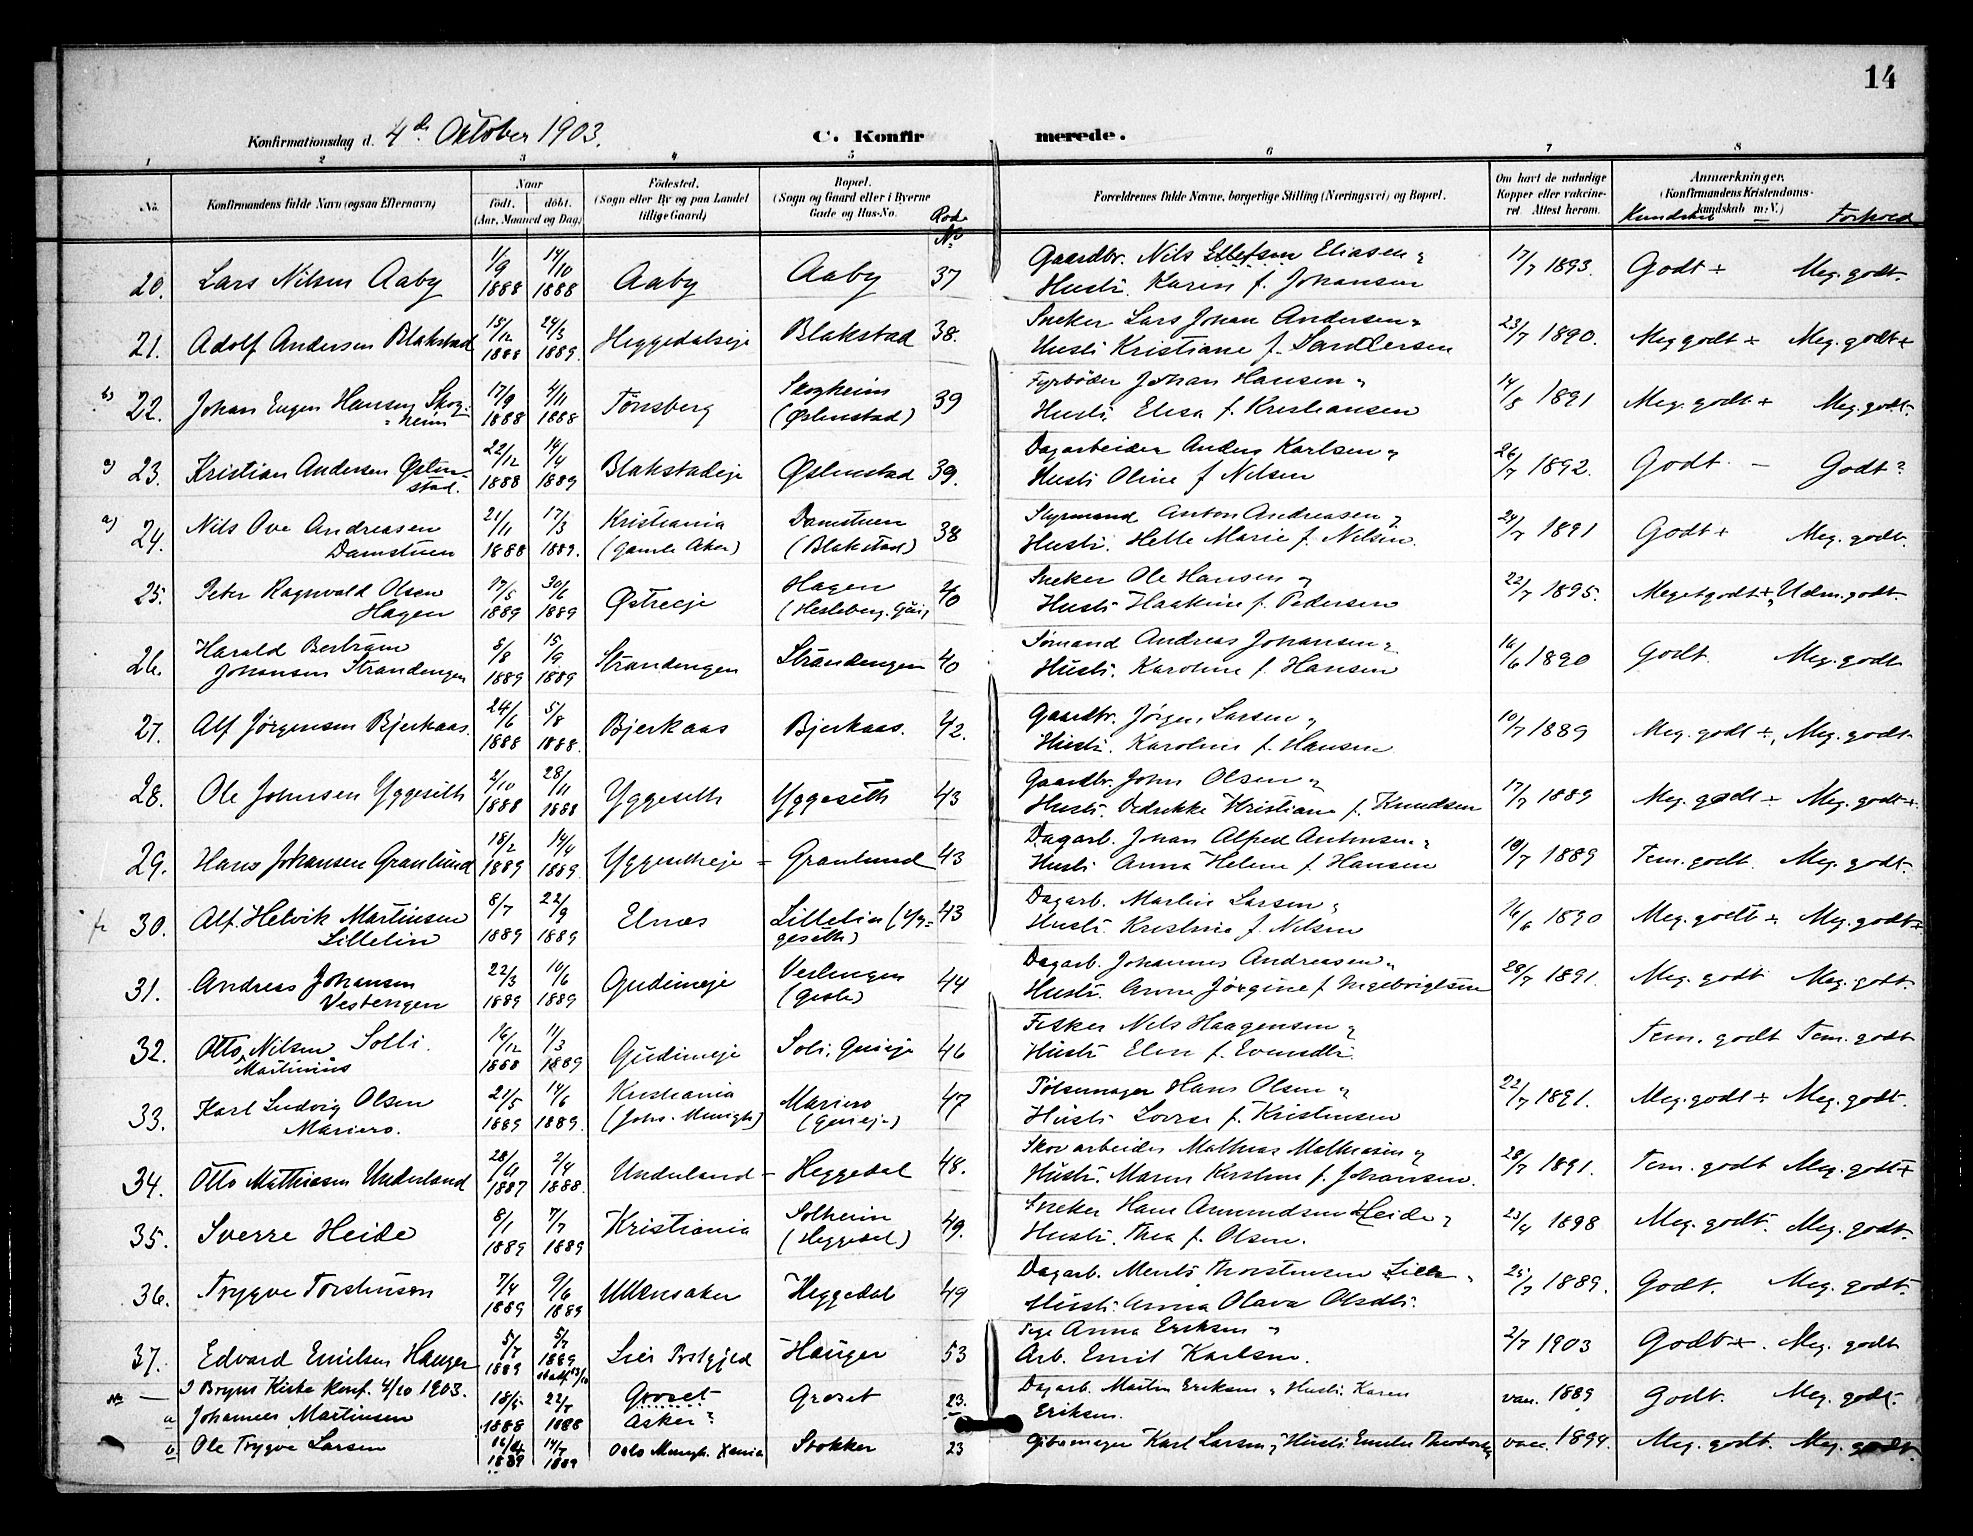 14
Konfirmationsdag d. 4de Oktober 1903.
C. Konfirmerede.
1 2 3 4 5 6 7 8
No. Konfirmandens fulde Navn (ogsaa Efternavn) Naar født. døbt. (Aar, Maaned og Dag) Fødested. (Sogn eller By og paa Landet tillige Gaard) Bopæl. (Sogn og Gaard eller i Byerne Gade og Hus-No. Rode No Forældrenes fulde Navne, borgerlige Stilling (Næringsvei) og Bopæl. Om havt de naturlige Kopper eller vakcineret. Attest herom. Anmærkninger. (Konfirmandens Kristendomskundskab m. V.) Kundskab Forhold
20. Lars Nilsen Aaby 1/9 1888 14/10 1888 Aaby Aaby 37 Gaardbr. Nils Ellefsen Eliasen, Hustr. Karen f. Johansen 17/7 1893. Godt + Meg. godt.
21. Adolf Andersen Blakstad 15/12 1888 24/3 1889. Heggedalseje Blakstad 38. Sneker Lars Johan Andersen, Hustr. Kristiane f. 23/7 1890. Meg godt + Meg. godt +
b) 22. Johan Eugen Hansen Skogheim 17/9 1888 4/11 1888 Tönsberg Skogheim (Østenstad) 39 Fyrbøder Johan Hansen, Hustr. Elisa f. Kristiansen 14/8 1891 Meg. godt + Meg. godt.
c) 23. Kristian Andersen Østenstad. 22/12 1888 14/4 1889 Blakstadeje Østenstad 39. Dagarbeider Anders Karlsen, Hustr. Oline f Nilsen 26/7 1892. Godt. — Godt?
a) 24. Nils Ove Andreasen Damstuen 21/11 1888 17/3 1889. Kristiania (Gamle Aker) Damstuen (Blakstad) 38 Styrmand Anton Andreasen, Hustr. Helle Marie f. Nilsen. 24/7 1891 Godt + Meg. godt.
25. Peter Ragnvald Olsen Hagen 17/5 1889 30/6 1889 Østreeje Hagen 40 Sneker Ole Hansen, Hustr. Haakine f. Pedersen 22/7 1895. Meget godt +, Udm. godt.
26. Harald Bertram Johansen Strandengen 5/8 1889 15/9 1889 Strandengen Strandengen 40 Sømand Andreas Johansen, Hustr. Karoline f. Hansen 16/6 1890 Godt. Meg. godt
27. Alf Jørgensen Bjerkaas. 24/6 1888 5/8 1888. Bjerkaas Bjerkaas. 42. Gaardbr. Jörgen Larsen, Hustr. Karoline f. Hansen 10/7 1889 Meg. godt +, Meg. godt.
28. Ole Johnsen Yggeseth 2/10 1888 28/11 1888 Yggeseth Yggeseth 43 Gaardbr. John Olsen, Hustr. Kristiane f. Knudsen 17/7 1889 Meg. godt + Meg. godt +.
29. Hans Johansen Granlund 18/2 1889 14/4 1889. Yggesetheje - Granlund 43 Dagarb. Johan Alfred Antonsen, Hustr. Anna Helene f. Hansen 10/7 1889 Tem. godt. Meg. godt.
30. Alf. Helvik Martinsen Lillelien 8/7 1889 22/9 1889 Elnæs Lillelien (Yggeseth) 43 Dagarb. Martin Larsen, Hustr. Kristine f. Nilsen 16/6 1890 Meg. godt +. Meg. godt +.
31. Andreas Johansen Vestengen 22/3 1889 10/6 1889 Gudimeje Vestengen 44 Dagarb. Johannes Andreasen, Hustr. Anne Jørgine f. Ingebrigtsen 28/7 1891. Meg. godt Meg. godt.
32. Otto Nilsen Solli. Martinius 16/12 1888 11/3 1889 Gudimeje Soli, 46 Fisker Nils Haagensen, Hustr. Elen f. Evensdtr. Tem. godt Tem. godt
33. Karl Ludvig Olsen Mariero. 21/5 1889 14/6 1889. Kristiania (Joh. Menigh) Mariero 47 Pølsemager Hans Olsen, Hustr. Lovise f. Kristensen 22/7 1891. Meg. godt + Meg. godt.
34. Otto Mathiasen Underland 28/11 1887 2/4 1888. Underland - Heggedal 48. Skovarbeider Mathias Mathiasen, Hustr. Maren Kirstine f. Johansen. 28/7 1891. Tem. godt Meg. godt +
35. Sverre Heide 8/1 1889 7/7 1889 Kristiania Solheim (Heggedal) 49. Sneker Hans Amundsen Heide, Hustr. Thea f. Olsen. 23/4 1898 Meg. godt. Meg. godt.
36. Trygve Torstensen 7/4 1889 9/6 1889 Ullensaker Heggedal 49 Dagarb. Thorstensen Lille, Hustr. Anna Olava Olsdtr. 25/7 1889. Godt. Meg. godt.
37. Edvard Emilsen Hauger 5/5 1889 5/7 1889 Lier Prstgjeld Hauger 53 Pige Anna Eriksen, Arb. Emil Karlsen. 2/7 1903 Godt +. Meg. godt
— I Bryns Kirke konf. 4/10 1903.
a Johannes Martinsen 18/5 1888 22/7 1888 Groset Asker? Groset 23. Dagarb. Martin Eriksen, Hustr. Karen Eriksen. vac. 1889 Godt. Meg. godt.
b Ole Trygve Larsen 16/4 1889 14/7 1889 Oslo Menigh. Xania Stokker 23 Gibsmager Karl Larsen, Hustr. Emilie vacc. 1894. Meg. godt. Meg. godt.